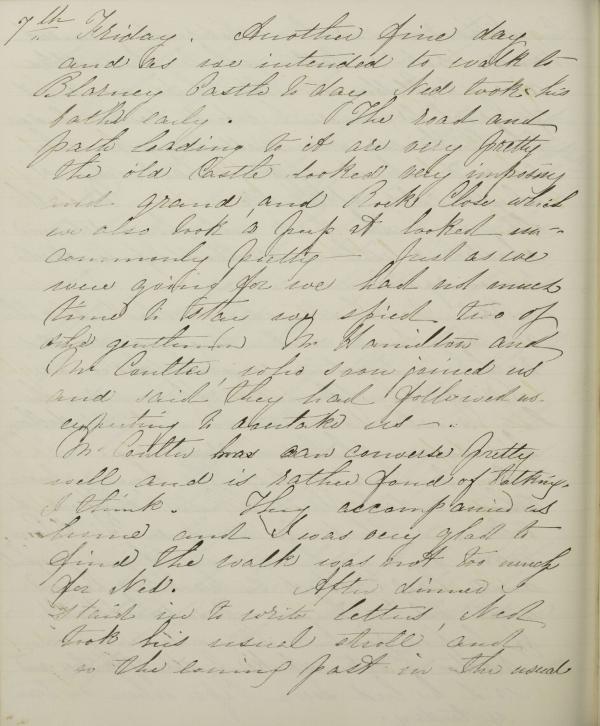 7th Friday. Another fine day
and as we intended to walk to
Blarney Castle to day Ned took his
bath early. The road and
path leading to it are very pretty
the old Castle looked very imposing
and grand, and Rock Close which
we also took a peep at looked un-
commonly pretty — Just as we
were going for we had not much
time to stay we spied two of
the gentlemen Mr Hamilton and
Mr Coulter, who soon joined us
and said they had followed us
expecting to overtake us —.
Mr Coulter can converse pretty
well and is rather fond of talking,
I think. They accompanied us
home and I was very glad to
find the walk was not too much
for Ned. After dinner I
staid in to write letters, Ned
took his usual stroll and
so the evening past in the usual